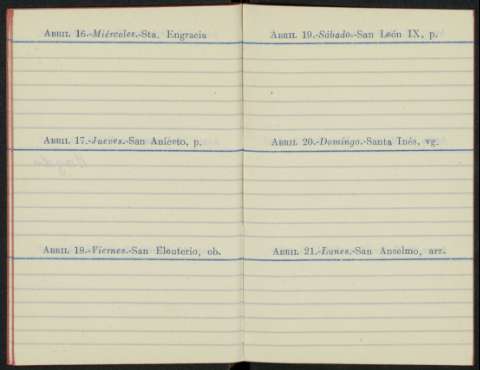 Abril 16.-Miércoles.-Sta. Engracia
Abril 17.-Jueves.-San Aniceto, p.
Abril 18.-Viernes.-San Eleuterio, ob.
Abril 19.-Sábado.-San León IX, p.
Abril 20.-Domingo.-Santa Inés, vg.
Abril 21.-Lunes.-San Anselmo, arz.